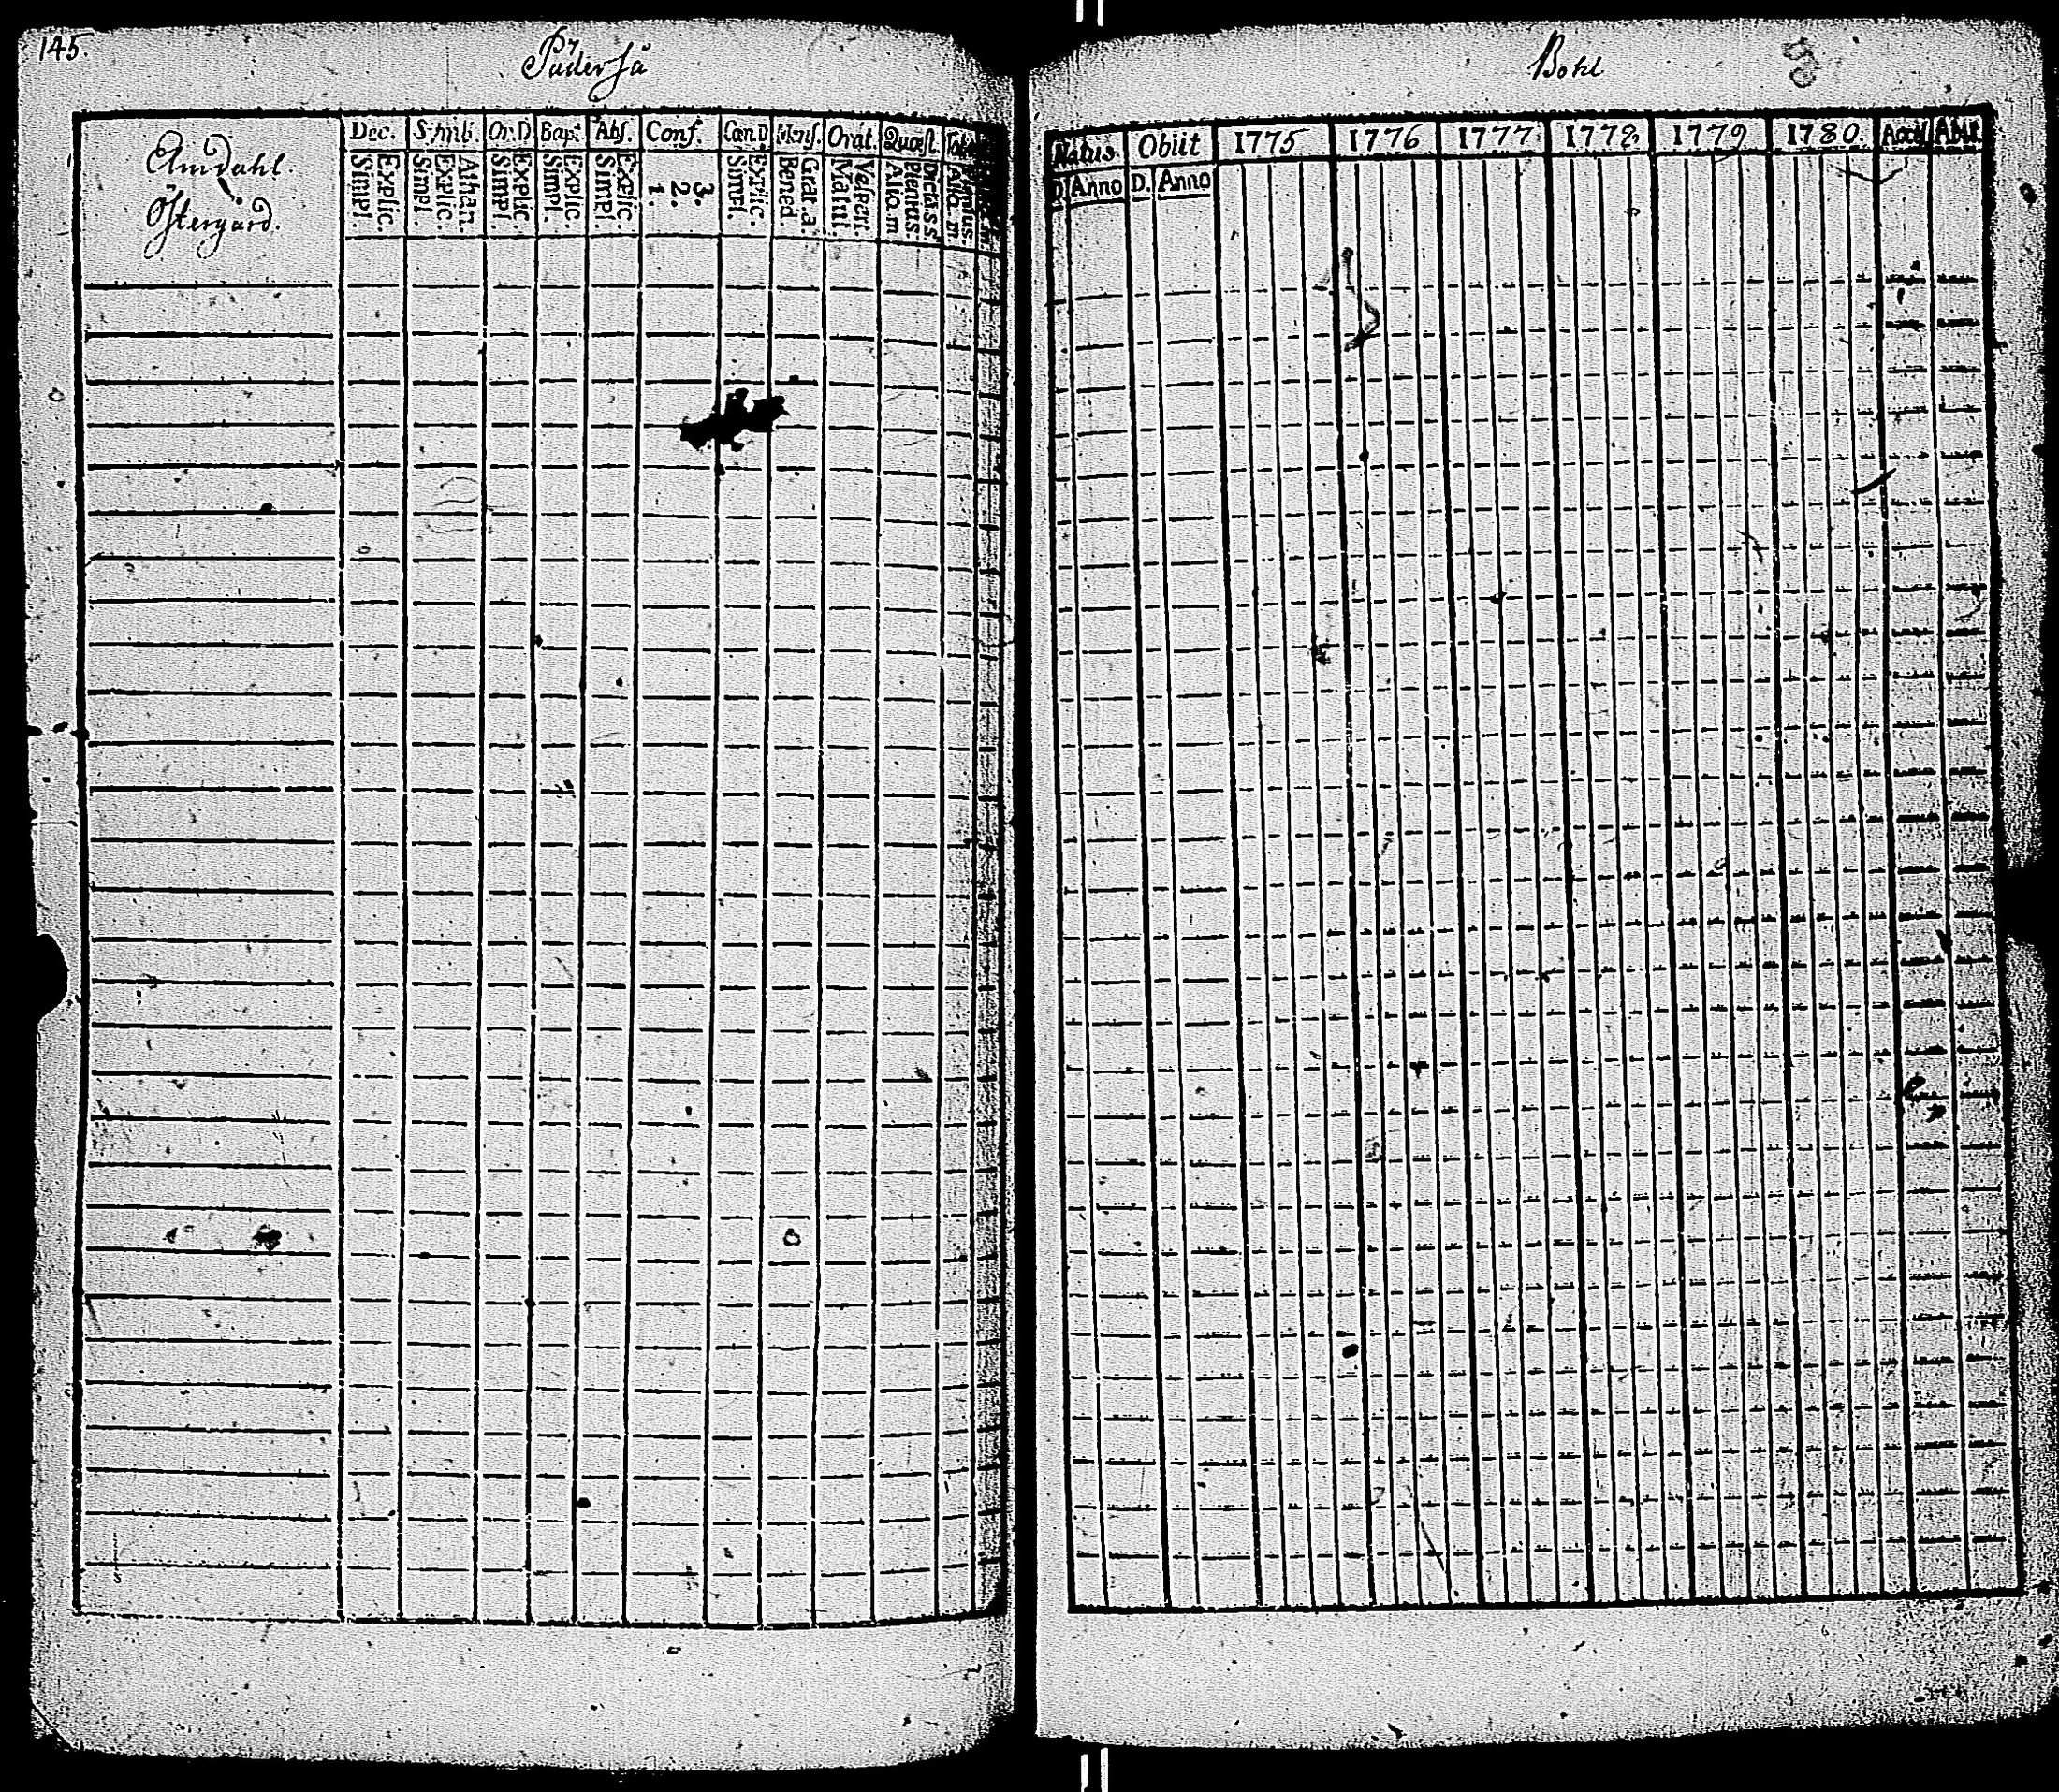 145.
Päderså
Bohl
Amdahl.
Östergård.
Dec. Symb. Or.D Bapt. Abs. Conf. Cæn.D Mens. Orat. Quæst.
Explic. Simpl.
Athan. Explic. Simpl.
Explic. Simpl.
Explic. Simpl.
Explic. Simpl.
3. 2. 1.
Explic. Simpl.
Grat.a. Bened.
Vespert. Matut.
Dictis s.s. Plenius. Aliq.m
Natus. Obiit 1775 1776 1777 1778 1779 1780. Acceß Abit
D. Anno D. Anno